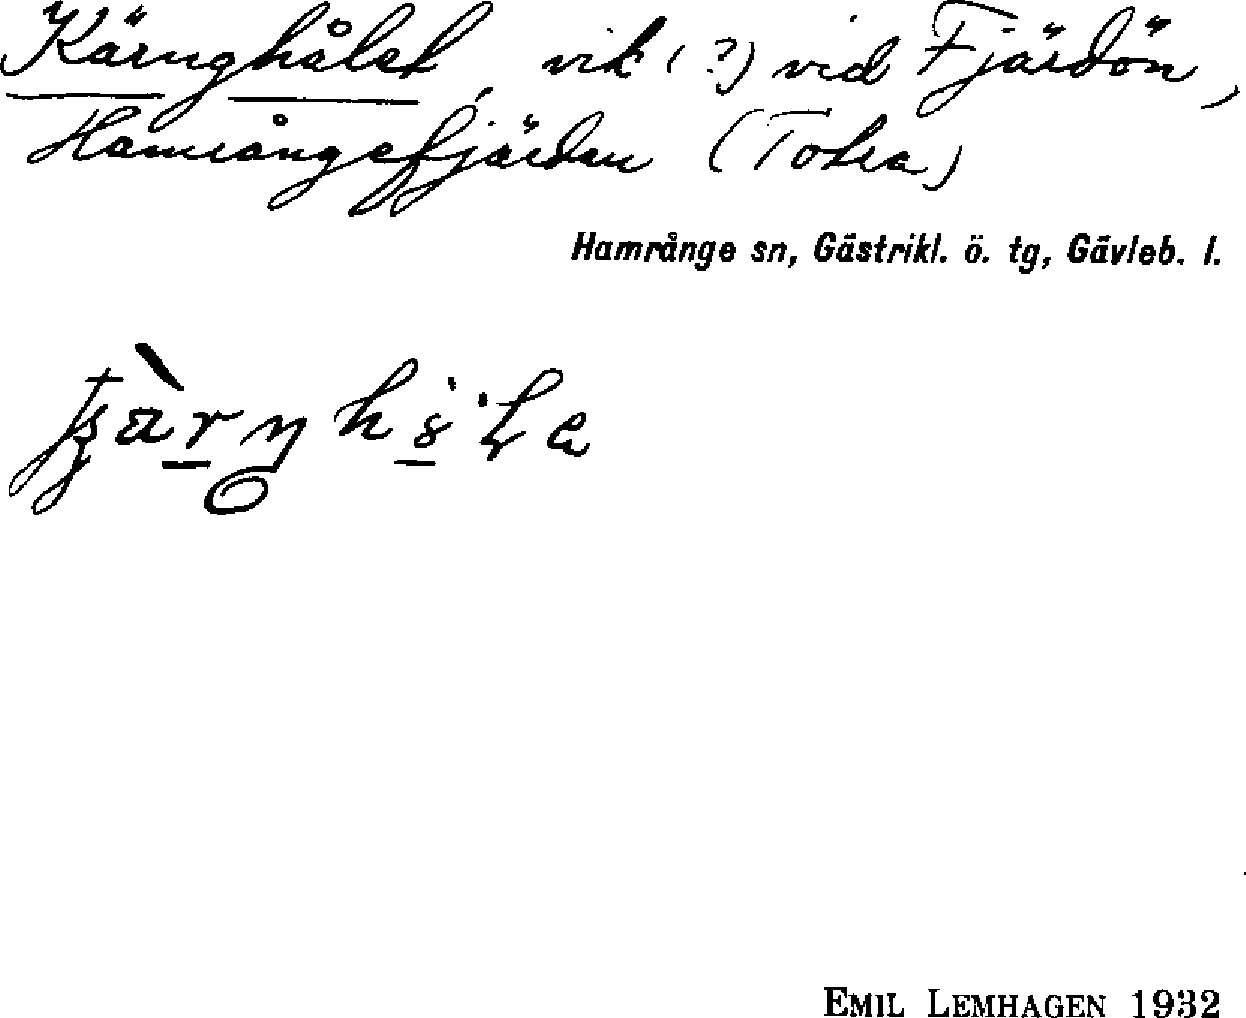 Kärnghålet, vik (?) vid Fjärdön,
Hamrångefjärden (Totra)
Hamrånge sn, Gästrikl. ö. tg, Gävleb. l.
EMIL LEMHAGEN 1932